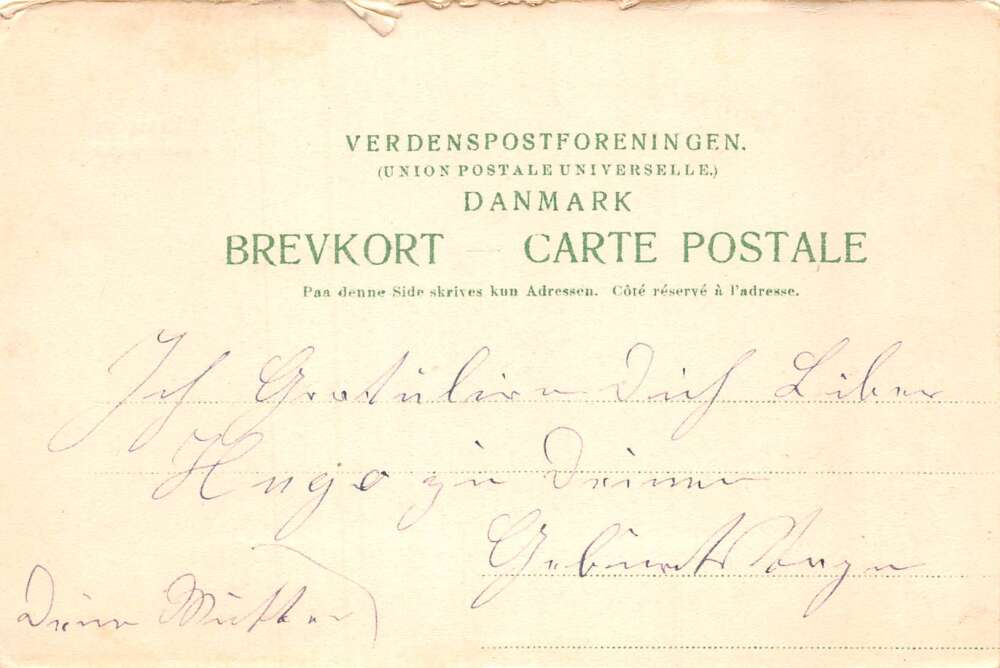 VERDENSPOSTFORENINGEN.
(UNION POSTALE UNIVERSELLE.)
DANMARK
BREVKORT — CARTE POSTALE
Paa denne Side skrives kun Adressen. Côté réservé à l'adresse.
Ich Gratuliere Dich Liber
Hugo zu Deinen
Geburts Tage
Deine Mutter